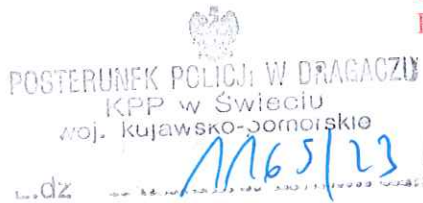 POSTERUNEK POLICJI W DRAGACZU
KPP w Świeciu
woj. kujawsko-pomorskie
L.dz 1165/23